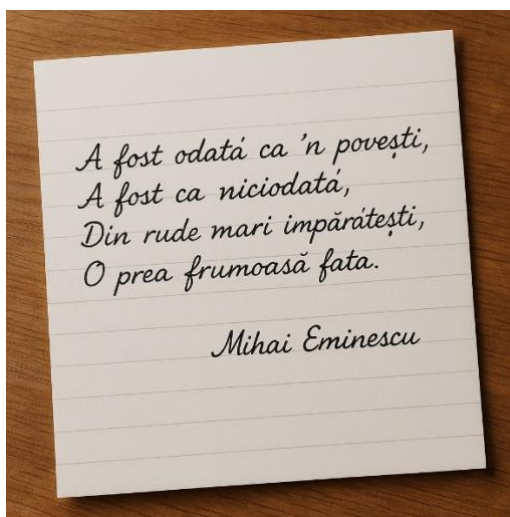 A fost odatá ca 'n povești,
A fost ca niciodatá,
Din rude mari impărátești,
O prea frumoasă fata.
Mihai Eminescu